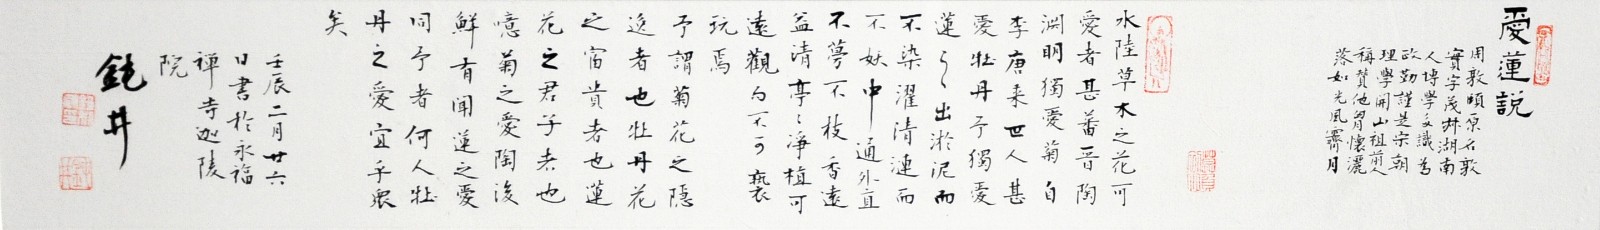 愛蓮説
周敦頤原名敦
實字茂叔湖南
人博學多識為
政勤謹是宋朝
理學開山祖前人
稱贊他胸懷灑
落如光風霽月
水陸草木之花可
愛者甚蕃晉陶
淵明獨愛菊自
李唐来世人甚
愛牡丹予獨愛
蓮之出淤泥而
不染濯清漣而
不妖中通外直
不蔓不枝香遠
益清亭〻淨植可
遠觀而不可褻
玩焉
予謂菊花之隱
逸者也牡丹花
之富貴者也蓮
花之君子者也
噫菊之愛陶後
鮮有聞蓮之愛
同予者何人牡
丹之愛宜乎眾
矣
壬辰二月廿六
日書於永福
禪寺迦陵
院
鈍井